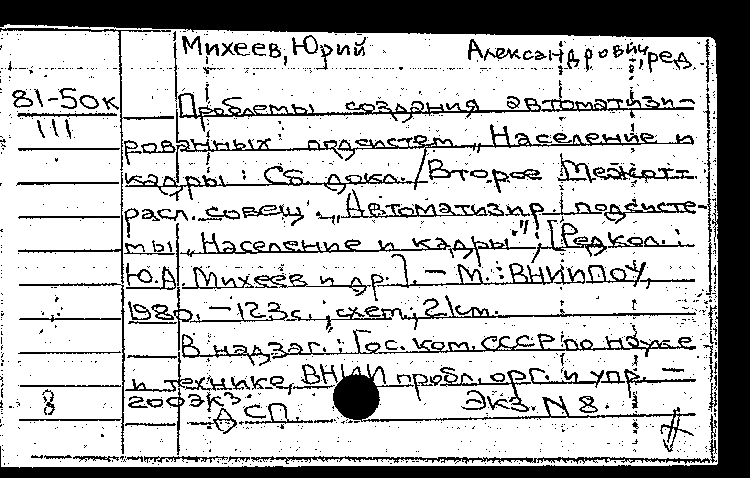 Михеев, Юрий Александрович, ред.
81-50к Проблемы создания автоматизи-
111 рованных подсистем „Население и
кадры: Сб. докл./Второе Межот-
расл. совещ. „Автоматизир. подсисте-
мы „Население и кадры"; [Редкол.:
Ю.А. Михеев и др.]. — М.: ВНИИПОУ,
1980. — 123с.; схем.; 21см.
В надзаг.: Гос. ком. СССР по науке
и технике, ВНИИ пробл. орг. и упр. —
8 200экз.
СП. Экз. N 8.